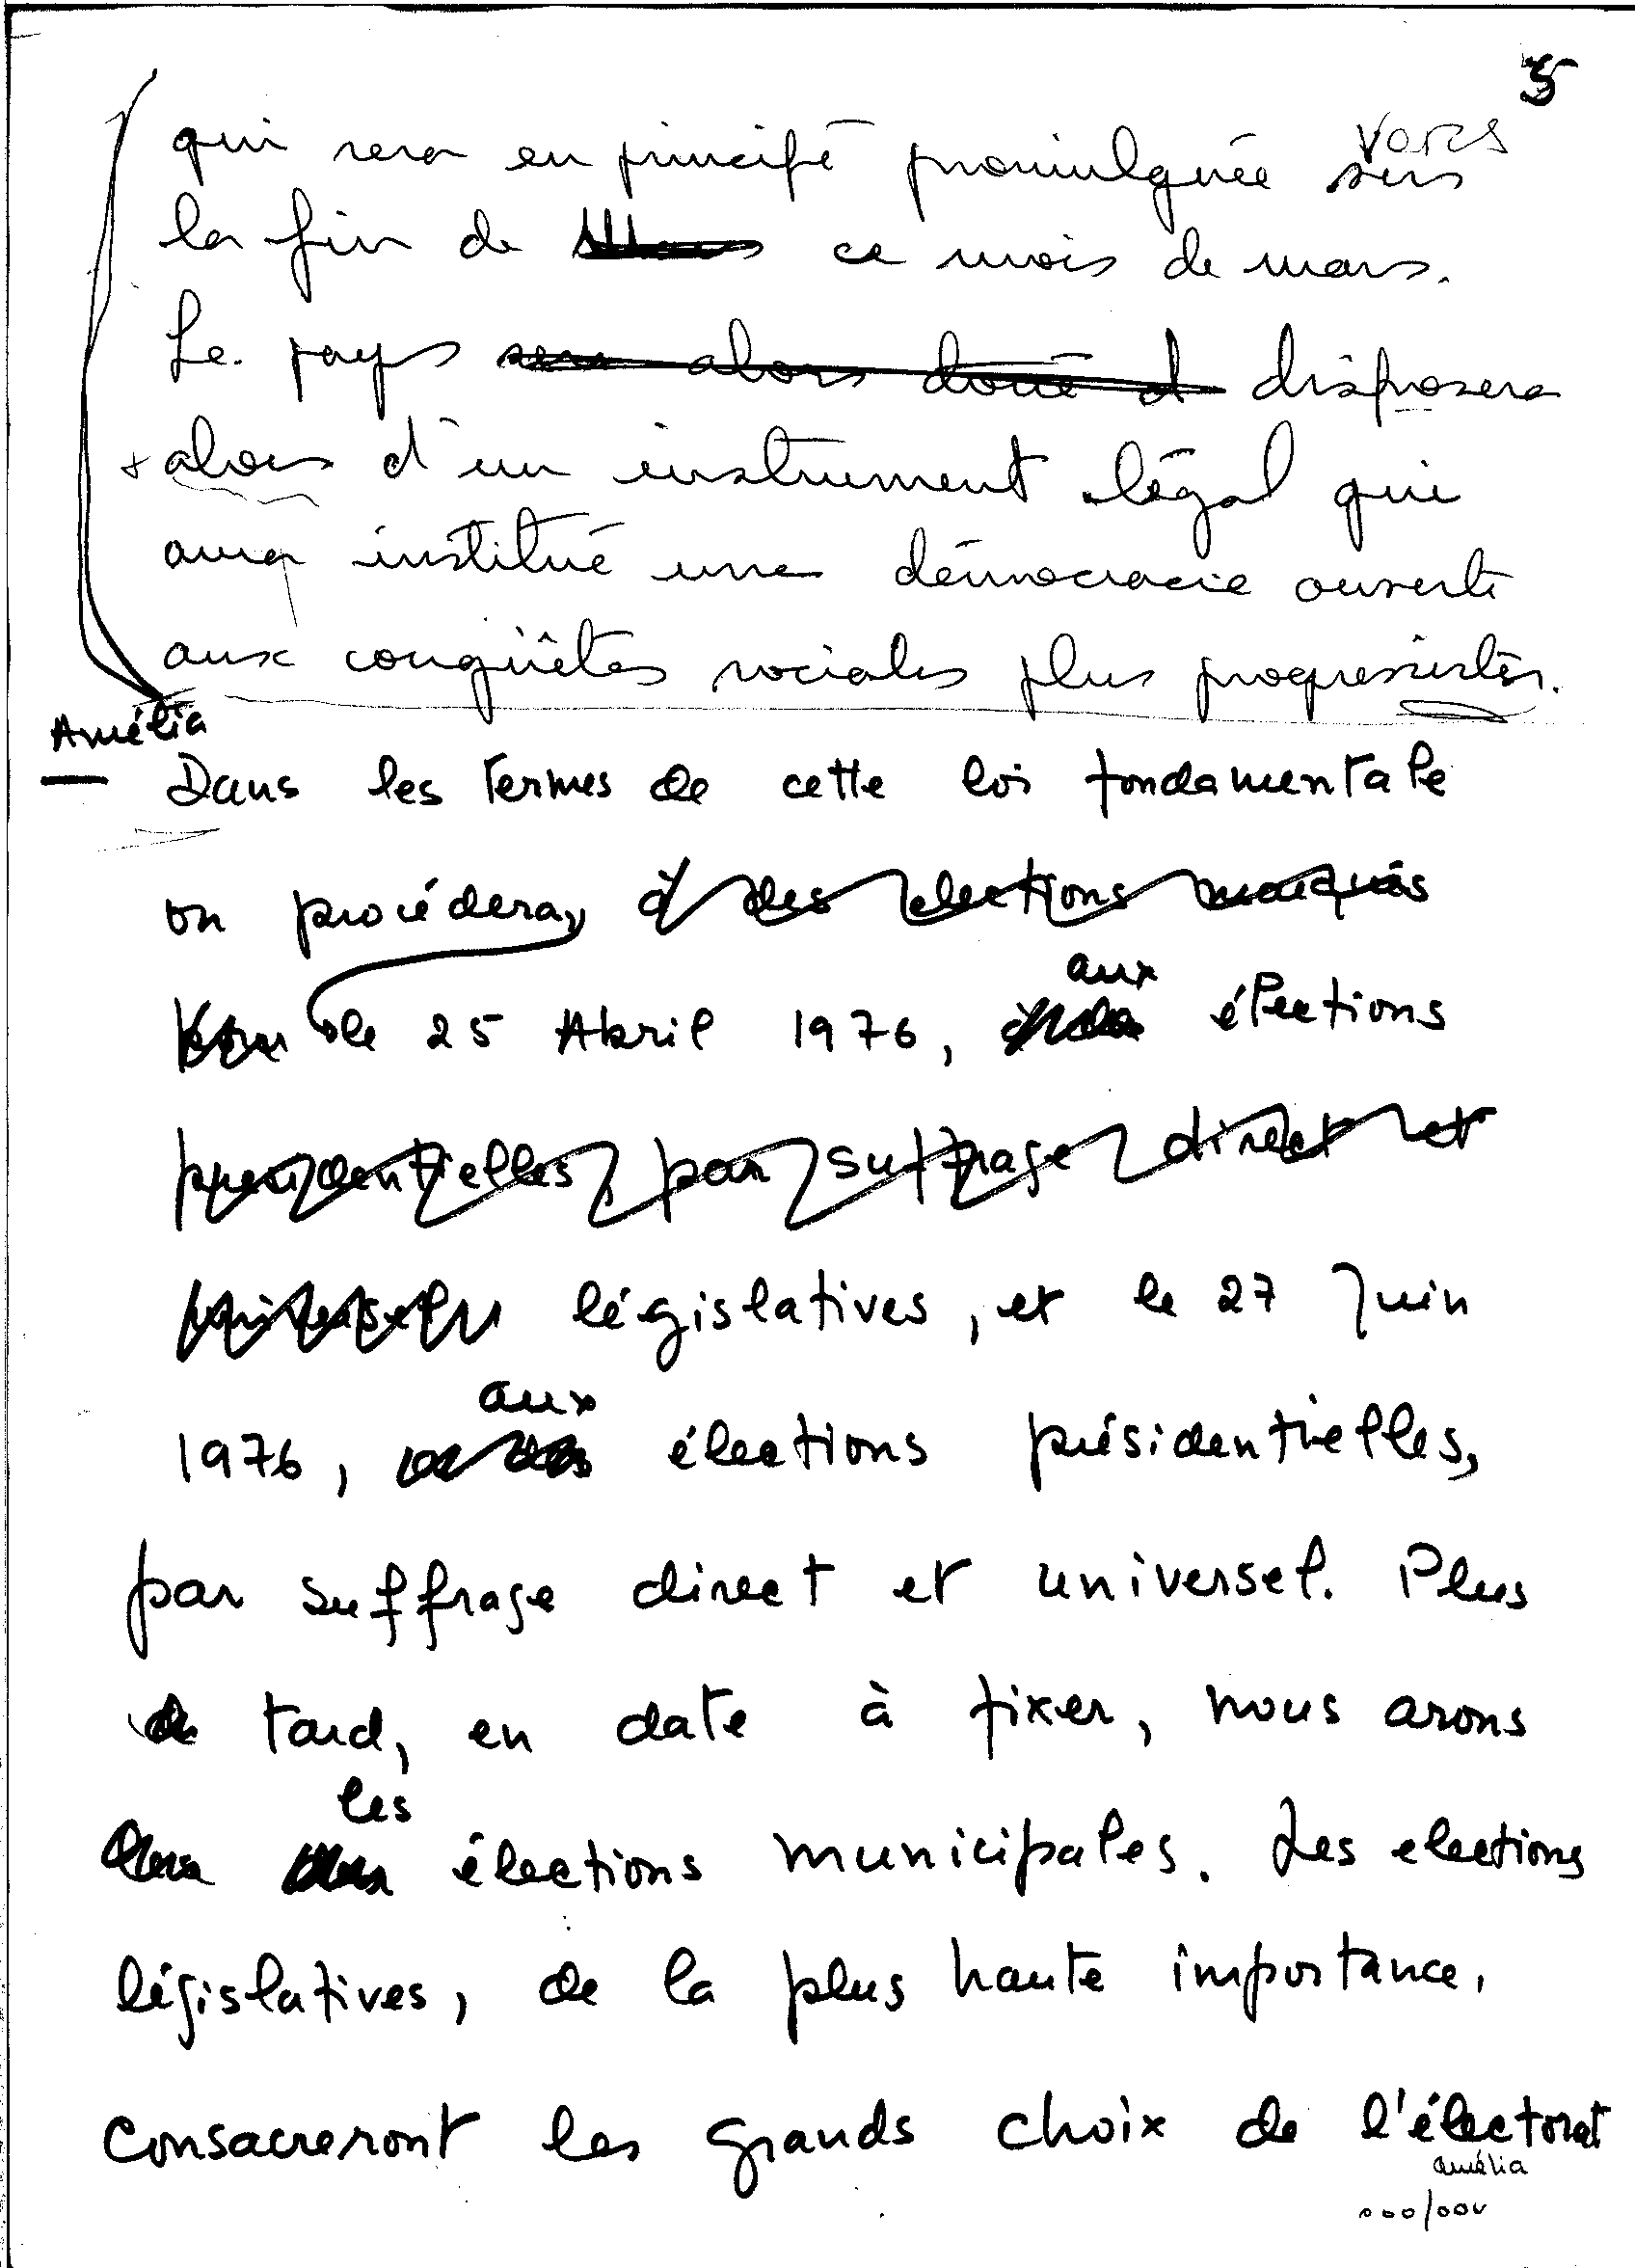 5
vers
qui sera en principe promulguée vers
la fin de ce mois de mars.
Le pays sera alors doué d disposera
alors d'un instrument légal qui
aura institué une démocracie ouverte
aux conquêtes sociales plus progressistes.
Amélia
Dans les termes de cette loi fondamentale
on procédera, à des elections
aux
le 25 Abril 1976, élections
presidentielles, par suffrage direct et
universel législatives, et le 27 Juin
aux
1976, élections présidentielles,
par suffrage direct et universel. Plus
tard, en date à fixer, nous arons
les
élections municipales. Les elections
législatives, de la plus haute importance,
consacreront les grands choix de l'électorat
amélia